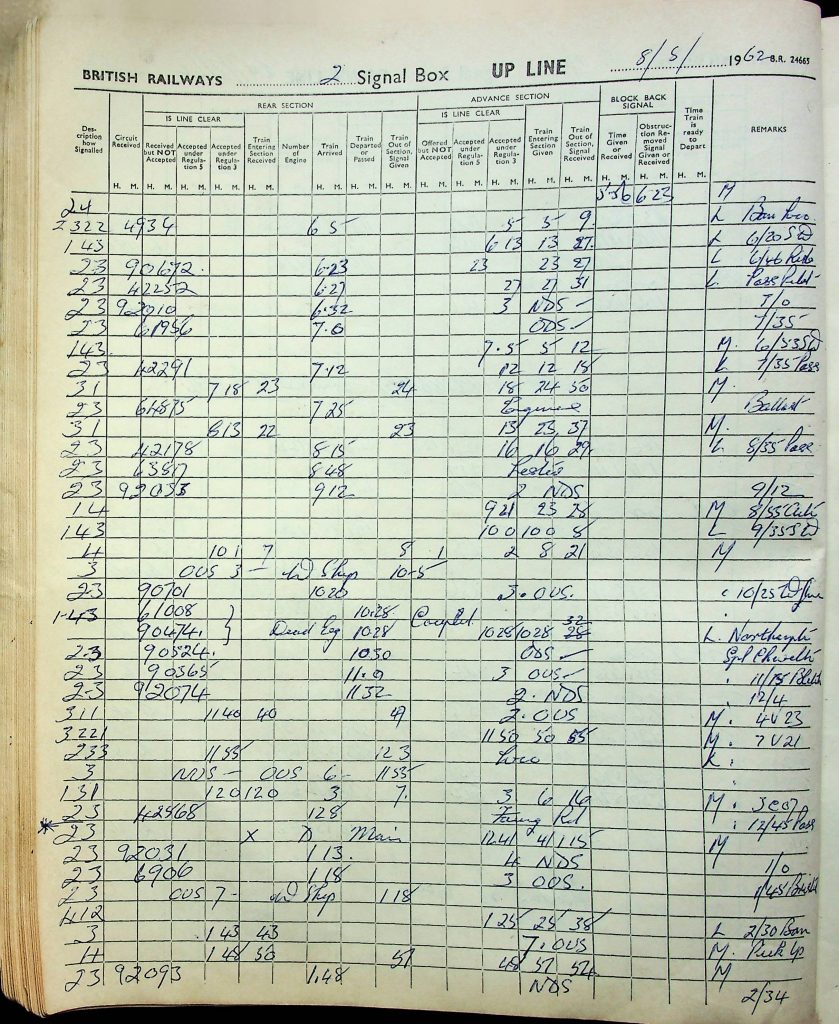 BRITISH RAILWAYS 2 Signal Box UP LINE 8/5/ 1962 B.R. 24663
REAR SECTION ADVANCE SECTION BLOCK BACK SIGNAL
IS LINE CLEAR IS LINE CLEAR
Description how Signalled Circuit Received Received but NOT Accepted Accepted under Regulation 5 Accepted under Regulation 3 Train Entering Section Received Number of Engine Train Arrived Train Departed or Passed Train Out of Section, Signal Given Offered but NOT Accepted Accepted under Regulation 5 Accepted under Regulation 3 Train Entering Section Given Train Out of Section, Signal Received Time Given or Received Obstruction Removed Signal Given or Received Time Train is ready to Depart REMARKS
H. M. H. M. H. M. H. M. H. M. H. M. H. M. H. M. H. M. H. M. H. M. H. M. H. M. H. M. H. M. H. M.
24 5-56 6-23 M
2322 4934 6 5 5 5 9 L Ban Loco
143 6 13 13 27 L 6/20
23 90672 6.23 23 23 27 L 6/46
23 42252 6.27 27 27 31 L
23 92010 6.32 3 NDS - 7/0
23 61956 7.0 ODS - 7/35
143 7.5 5 12 M. 6/53
23 42291 7.12 12 12 15 L 7/35 Pass
31 7 18 23 24 18 24 50 M.
23 64875 7 25 Engineers Ballast
31 8 13 22 23 13 23 37 M.
23 42178 8 15 16 16 29 L 8/35 Pass
23 63817 8 48
23 92033 9 12 2 NDS 9/12
14 9 21 23 28 M 8/55
143 10 0 10 0 8 L 9/35
4 10 1 7 8 1 2 8 21 M
3 OUS 3 - 10-5
23 90701 10 20 3. OUS. 10/25
1-43 61008 } 10.28
90474. } Dead Eng 10 28 10 28 10 28 28 32 L.
2-3 90524. 10 30 ODS -
23 90365 11.0 3 OUS - 11/15
2-3 92074 11 32 2. NDS 12/4
311 11 40 40 49 2. OUS M. 4V23
3221 11 50 50 55 M. 7V21
233 11 55 12 3 Loco
3 NDS - OUS 6 - 11 55
131 12 0 12 0 3 7. 3 6 16 M.
23 42568 12 8 12/45 Pass
* 23 X D Main 12 41 41 1 15 M
23 92031 1 13. 4 NDS 1/0
23 6906 1 18 3 OOS. 1/45
23 OUS 7 - 1 18
412 1 25 25 38 L 2/30 Ban
3 1 43 43 7. OUS
4 1 48 50 57 48 57 54 M. Pick Up
23 92093 1.48 NDS M 2/34